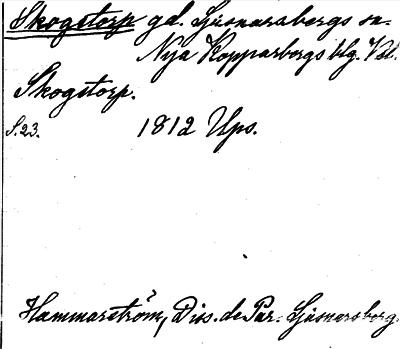 Skogstorp gd. Ljusnarsbergs sn.
Nya Kopparbergs blg. Vstl.
Skogstorp.
S. 23. 1812 Ups.
Hammarström, Diss. de Par. Ljusnarsberg.